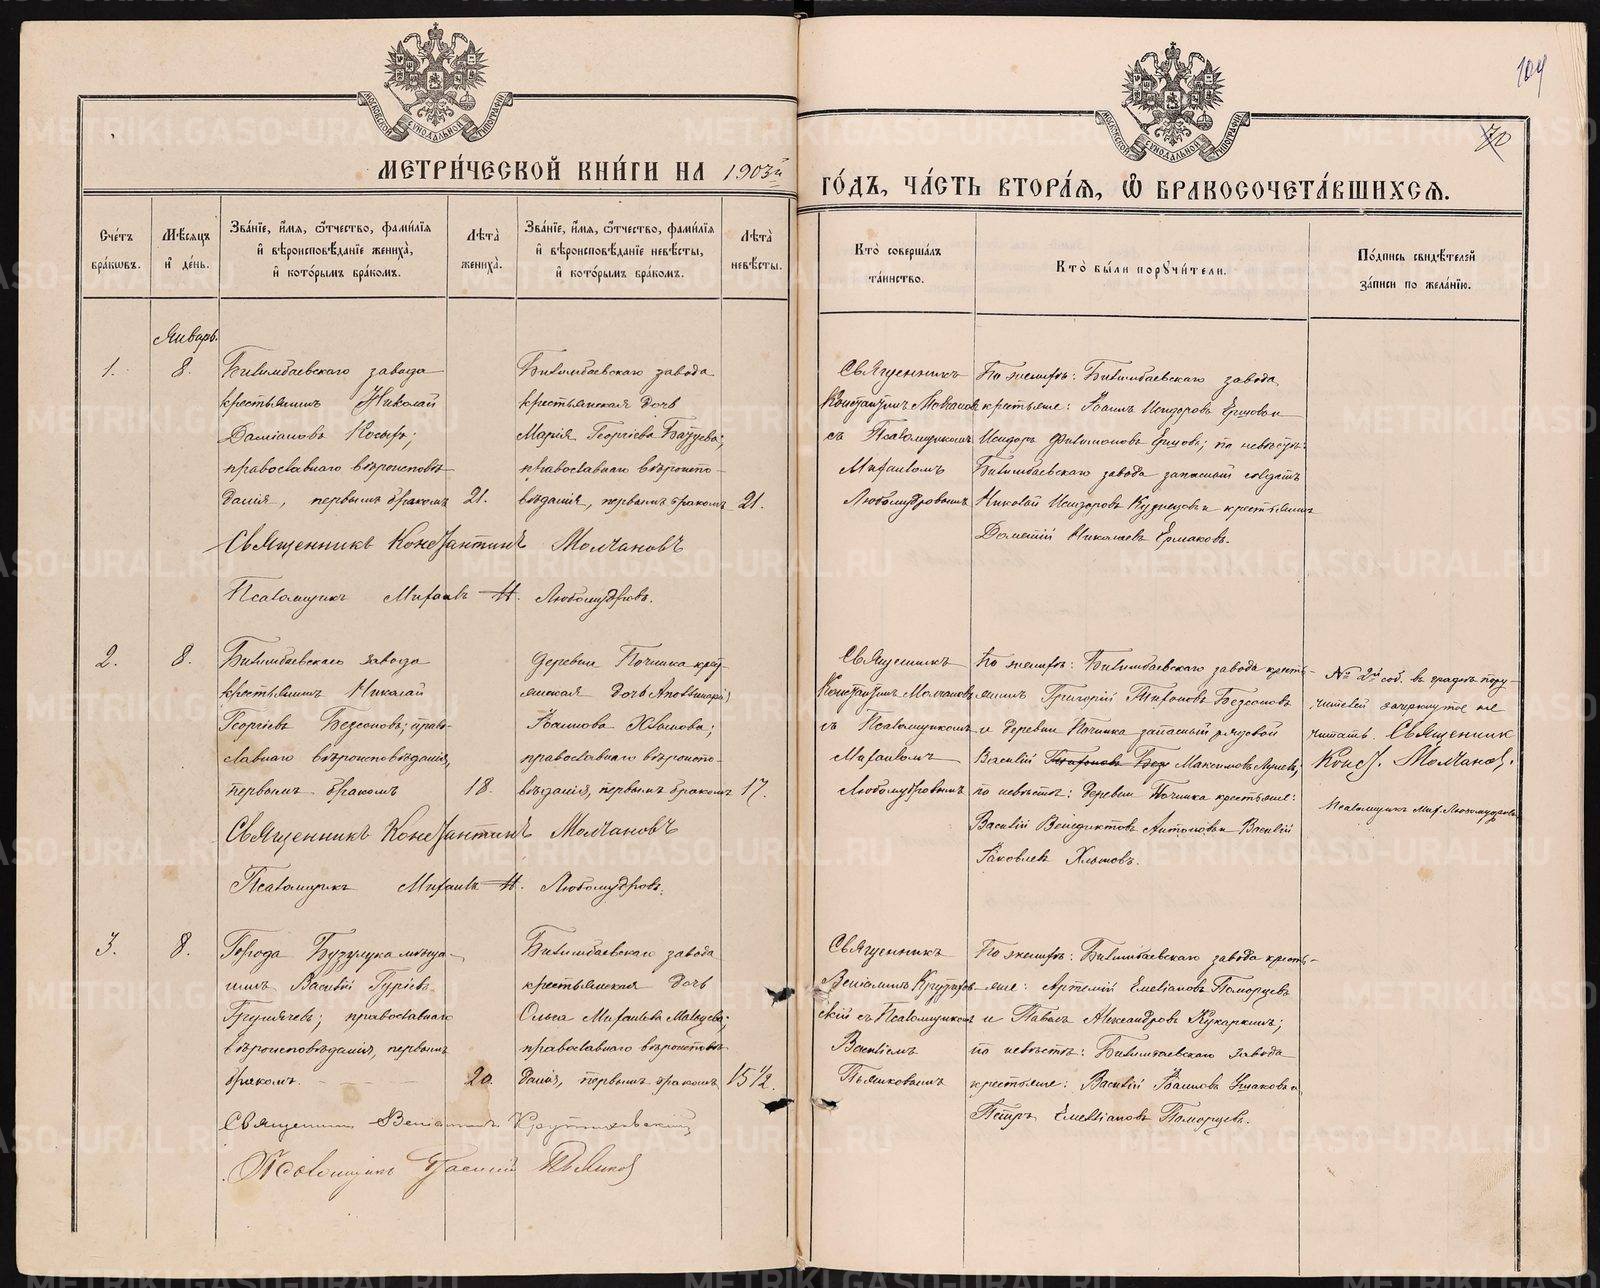 104
70
МЕТРИ́ЧЕСКОЙ КНИ́ГИ НА 1903й
ГО́ДЪ, ЧА́СТЬ ВТОРА́Я, Ѿ БРАКОСОЧЕТА́ВШИХСЯ.
МОСКОВСКОЙ СѴНОДАЛЬНОЙ ТИПОГРАФІИ
МОСКОВСКОЙ СѴНОДАЛЬНОЙ ТИПОГРАФІИ
Сче́тъ бра́кѡвъ.
Мѣ́сяцъ и҆ де́нь.
Зва́нїе, и҆́мя, ѻ҆́тчество, фами́лїя
и҆ вѣроисповѣ́данїе жениха̀,
и҆ кото́рымъ бра́комъ.
Лѣ́та жениха̀.
Зва́нїе, и҆́мя, ѻ҆́тчество, фами́лїя
и҆ вѣроисповѣ́данїе невѣ́сты,
и҆ кото́рымъ бра́комъ.
Лѣ́та невѣ́сты.
Кто̀ соверша́лъ
та́инство.
Кто̀ бы́ли поручи́тели.
По́дпись свидѣ́телей
за́писи по жела́нїю.
Январь.
1.
8.
Билимбаевскаго завода
крестьянинъ Николай
Даміановъ Косыхъ;
православнаго вѣроисповѣ
данія, первымъ бракомъ
21.
Билимбаевскаго завода
крестьянская дочь
Марія Георгіева
православнаго вѣроиспо-
вѣданія, первымъ бракомъ
21.
Священникъ
Константинъ Молчановъ
съ Псаломщикомъ
Михаиломъ
Любомудровымъ
По женихѣ: Билимбаевскаго завода
крестьяне: Іоаннъ Исидоровъ Ершовъ и
Исидоръ Филимоновъ Ершовъ; по невѣстѣ:
Билимбаевскаго завода запасный солдатъ
Николай Исидоровъ Кузнецовъ и крестьянинъ
Дометій Николаевъ Ермаковъ.
Священникъ Константинъ Молчановъ
Псаломщикъ Михаилъ Н. Любомудровъ.
2.
8.
Билимбаевскаго завода
крестьянинъ Николай
Георгіевъ Безсоновъ; право-
славнаго вѣроисповѣданія,
первымъ бракомъ
18.
Деревни Починка крес-
янская дочь Аполлинарія
Іоаннова Хлынова;
православнаго вѣроиспо-
вѣданія, первымъ бракомъ
17.
Священникъ
Константинъ Молчановъ
съ Псаломщикомъ
Михаиломъ
Любомудровымъ
По женихѣ: Билимбаевскаго завода кресть-
янинъ Григорій Тихоновъ Безсоновъ
и деревни Починка запасный рядовой
Василій Тихоновъ Без Максимовъ
по невѣстѣ: деревни Починка крестьяне:
Василій Венедиктовъ Антоновъ и Василій
Іаковлевъ Хлыновъ.
№ 2й соб. въ графѣ пору-
чителей зачеркнутое не
читать. Священникъ
Конст. Молчановъ.
Псаломщикъ Мих. Любомудровъ
Священникъ Константинъ Молчановъ
Псаломщикъ Михаилъ Н. Любомудровъ.
3.
8.
Города Бузулука мѣща-
нинъ Василій Гуріевъ
православнаго
вѣроисповѣданія, первымъ
бракомъ.
20.
Билимбаевскаго завода
крестьянская дочь
Ольга Михаилова Мальцева;
православнаго вѣроисповѣ
данія, первымъ бракомъ
15 1/2.
Священникъ
Веніаминъ Крутихов
скій съ Псаломщикомъ
Василіемъ
Пьянковымъ
По женихѣ: Билимбаевскаго завода кресть-
яне: Артемій Емеліановъ Поморцевъ
и Павелъ Александровъ Кукаркинъ;
по невѣстѣ: Билимбаевскаго завода
крестьяне: Василій Іоанновъ Ушаковъ и
Петръ Емеліановъ Поморцевъ.
Священникъ Веніаминъ Крутиховскій
Псаломщикъ Василій Пьянковъ
METRIKI.GASO-URAL.RU